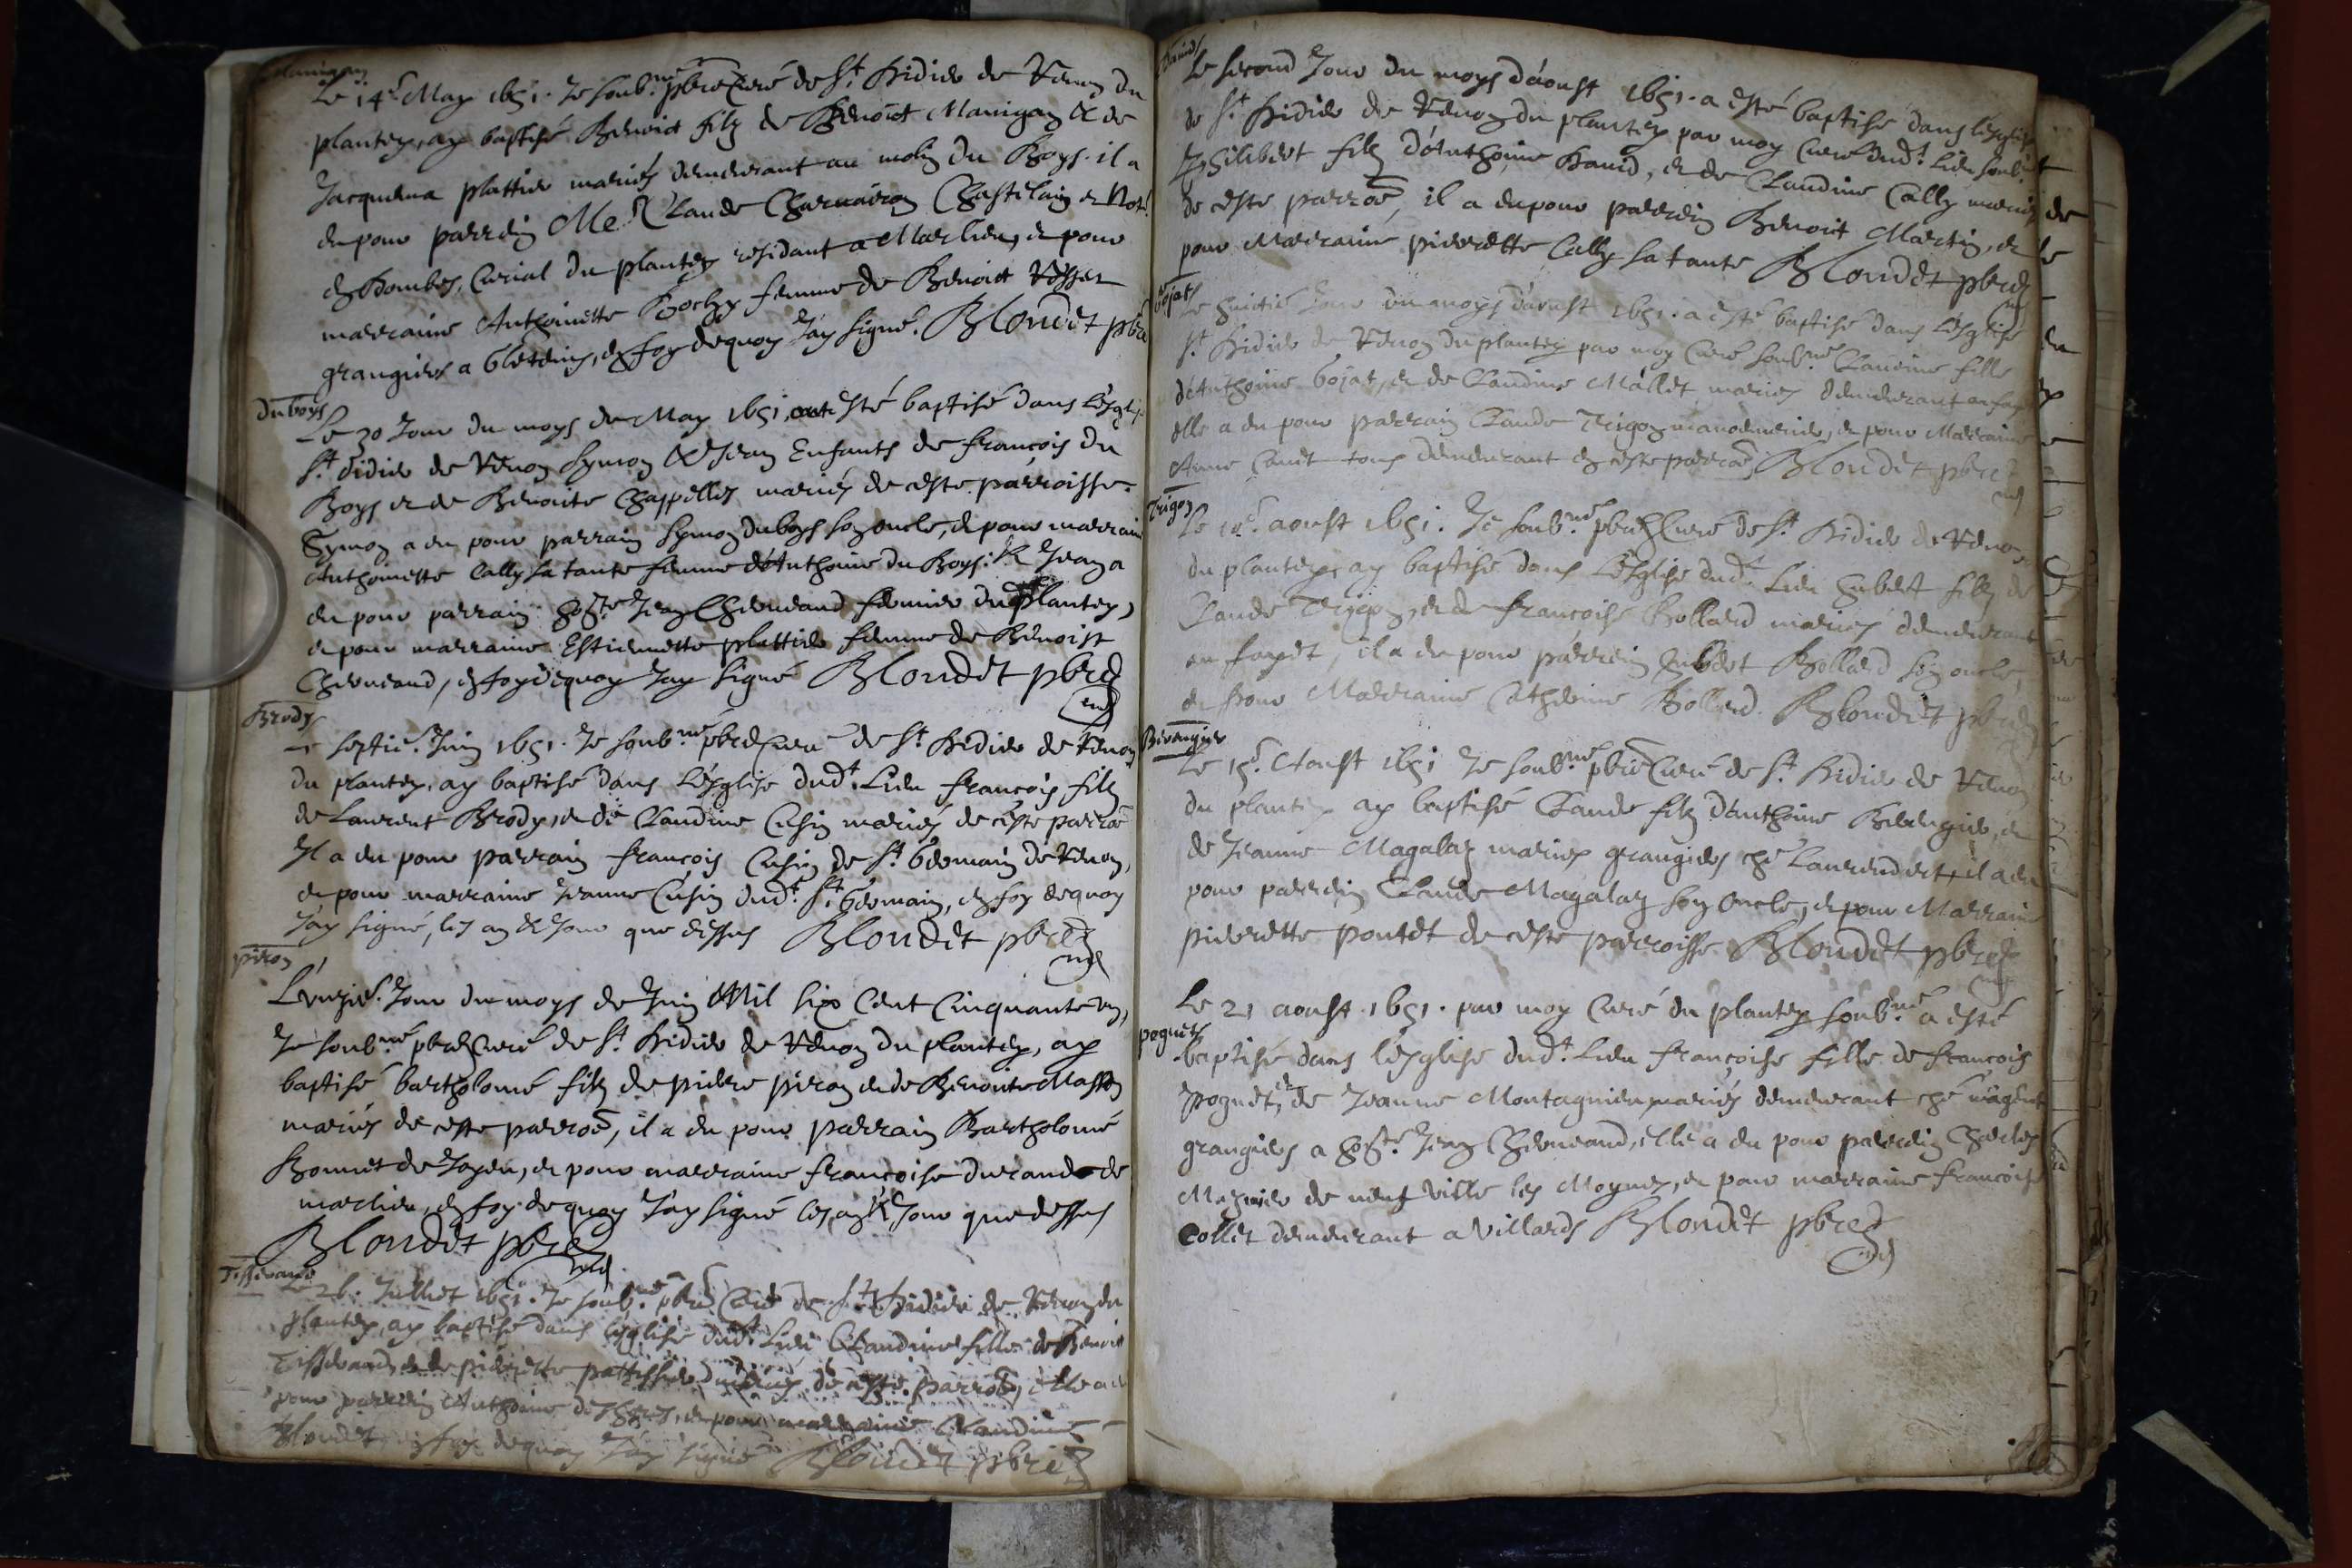 Manigan
Le 14e May 1651. Je soubné pbre Curé de St Didier de Renon du
plantey, ay baptisé Benoict filz de Benoict Manigan & de
Jacquema plattier mariés demeurant au molin du Boys. il a
eu pour parrein Me Claude Charnairon Chastelain et Note
en Dombes, Curial du plantey residant a Marlieu, et pour
marraine Anthoinette Bochy femme de Benoict Rosset
grangiers a Gleteins, en foy dequoy Jay signé. Blondet pbre
du boys
Le 30 Jour du moys de May 1651, ont esté baptisé dans L'esglise
St Didier de Renon Symon & Jean Enfants de françois du
Boys et de Benoite Chappelles mariés de ceste parroisse.
Symon a eu pour parrain Symon duboys son oncle, et pour marraine
Anthoinette Cally sa tante femme d'Anthoine du Boys: & Jean a
eu pour parrain hoste Jean Cheveneand fermier du Plantey,
et pour marraine Estiennette plattier femme de Benoist
Cheveneand, en foy dequoy Jay signé Blondet pbre
Brody
Le septie. Juin 1651. Je soubné pbre Curé de St Didier de Renon
du plantey, ay baptisé dans L'esglise dudt Lieu françois filz
de Laurent Brody, et de Claudine Cusin mariés de ceste parroe
Il a eu pour parrain françois Cusin de St Germain de Renon,
et pour marraine Jeanne Cusin dudt St Germain, en foy dequoy
Jay signé, les an & Jour que dessus Blondet pbre
piron
L'unzie. Jour du moys de Juin Mil six Cent Cinquante un,
Je soubné pbre Curé de St Didier de Renon du plantey, ay
baptisé bartholomé filz de pierre piron et de Benoite Masson
mariés de ceste parroe, il a eu pour parrain Bartholomé
Bonnet de Joyeu, et pour marraine françoise durand de
marlieu, en foy dequoy Jay signé les an & Jour que dessus
Blondet pbre
Tisserand
Le 26. Juillet 1651. Je soubné pbre Curé de St Didier de Renon du
plantey, ay baptisé dans L'esglise dudt Lieu Claudine fille de Benoit
Tisserand, et de pierrette pattissier mariés de ceste parroe, elle a eu
pour parrein Anthoine des, et pour marraine Claudine
Blondet, en foy dequoy Jay signé Blondet pbre
Baurd
Le second Jour du moys d'aoust 1651. a esté baptisé dans l'esglise
de St Didier de Renon du plantey par moy Curé dudt Lieu soubné
Philibert filz d'Anthoine Baurd, et de Claudine Cally mariés
de ceste parroe, il a eu pour parrein Benoict Martin, et
pour Marraine pierrette Cally sa tante Blondet pbre
Gojat
Le huitie Jour du moys d'aoust 1651. a esté baptisé dans L'esglise
St Didier de Renon du plantey par moy Curé soubné Claudine fille
d'Anthoine Gojat, et de Claudine Mallet mariés demeurant au fayet
elle a eu pour parrain Claude Trigon manoeuvrier, et pour Marraine
Anne tous demeurant en ceste parroe Blondet pbre
Trigon
Le aoust 1651. Je soubné pbre Curé de St Didier de Renon
du plantey, ay baptisé dans L'esglise dudt Lieu hubert filz de
Claude Trigon, et de françoise Bollard mariés demeurant
au fayet, il a eu pour parrein hubert Bollard son oncle,
et pour Marraine Catherine Bollard. Blondet pbre
Berangier
Le 15e. Aoust 1651 Je soubné pbre Curé de St Didier de Renon
du plantey ay baptisé Claude filz d'anthoine Berengier, et
de Jeanne Magalaz mariés grangiers ché Laurendert, il a eu
pour parrein Claude Magalaz son oncle, et pour Marraine
pierrette pontet de ceste parroisse Blondet pbre
poguets
Le 21 aoust 1651. par moy Curé du plantey soubné a esté
baptisé dans l'esglise dudt Lieu françoise fille de françois
poguet, et de Jeanne Montagnieu mariés demeurant ché magent
grangiers a hoste Jean Cheveneand, elle a eu pour parrein Charles
Meynier de neufville les Moynes, et pour marraine françoise
Collet demeurant a Villards Blondet pbre